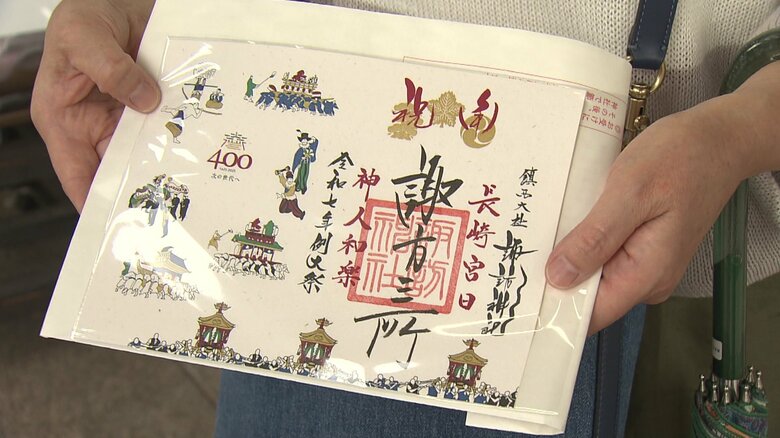 鎮西大社
諏訪神社
長崎宮日
諏方三所
諏訪
神社
神人和楽
令和七年例大祭
400
次の世代へ
祝